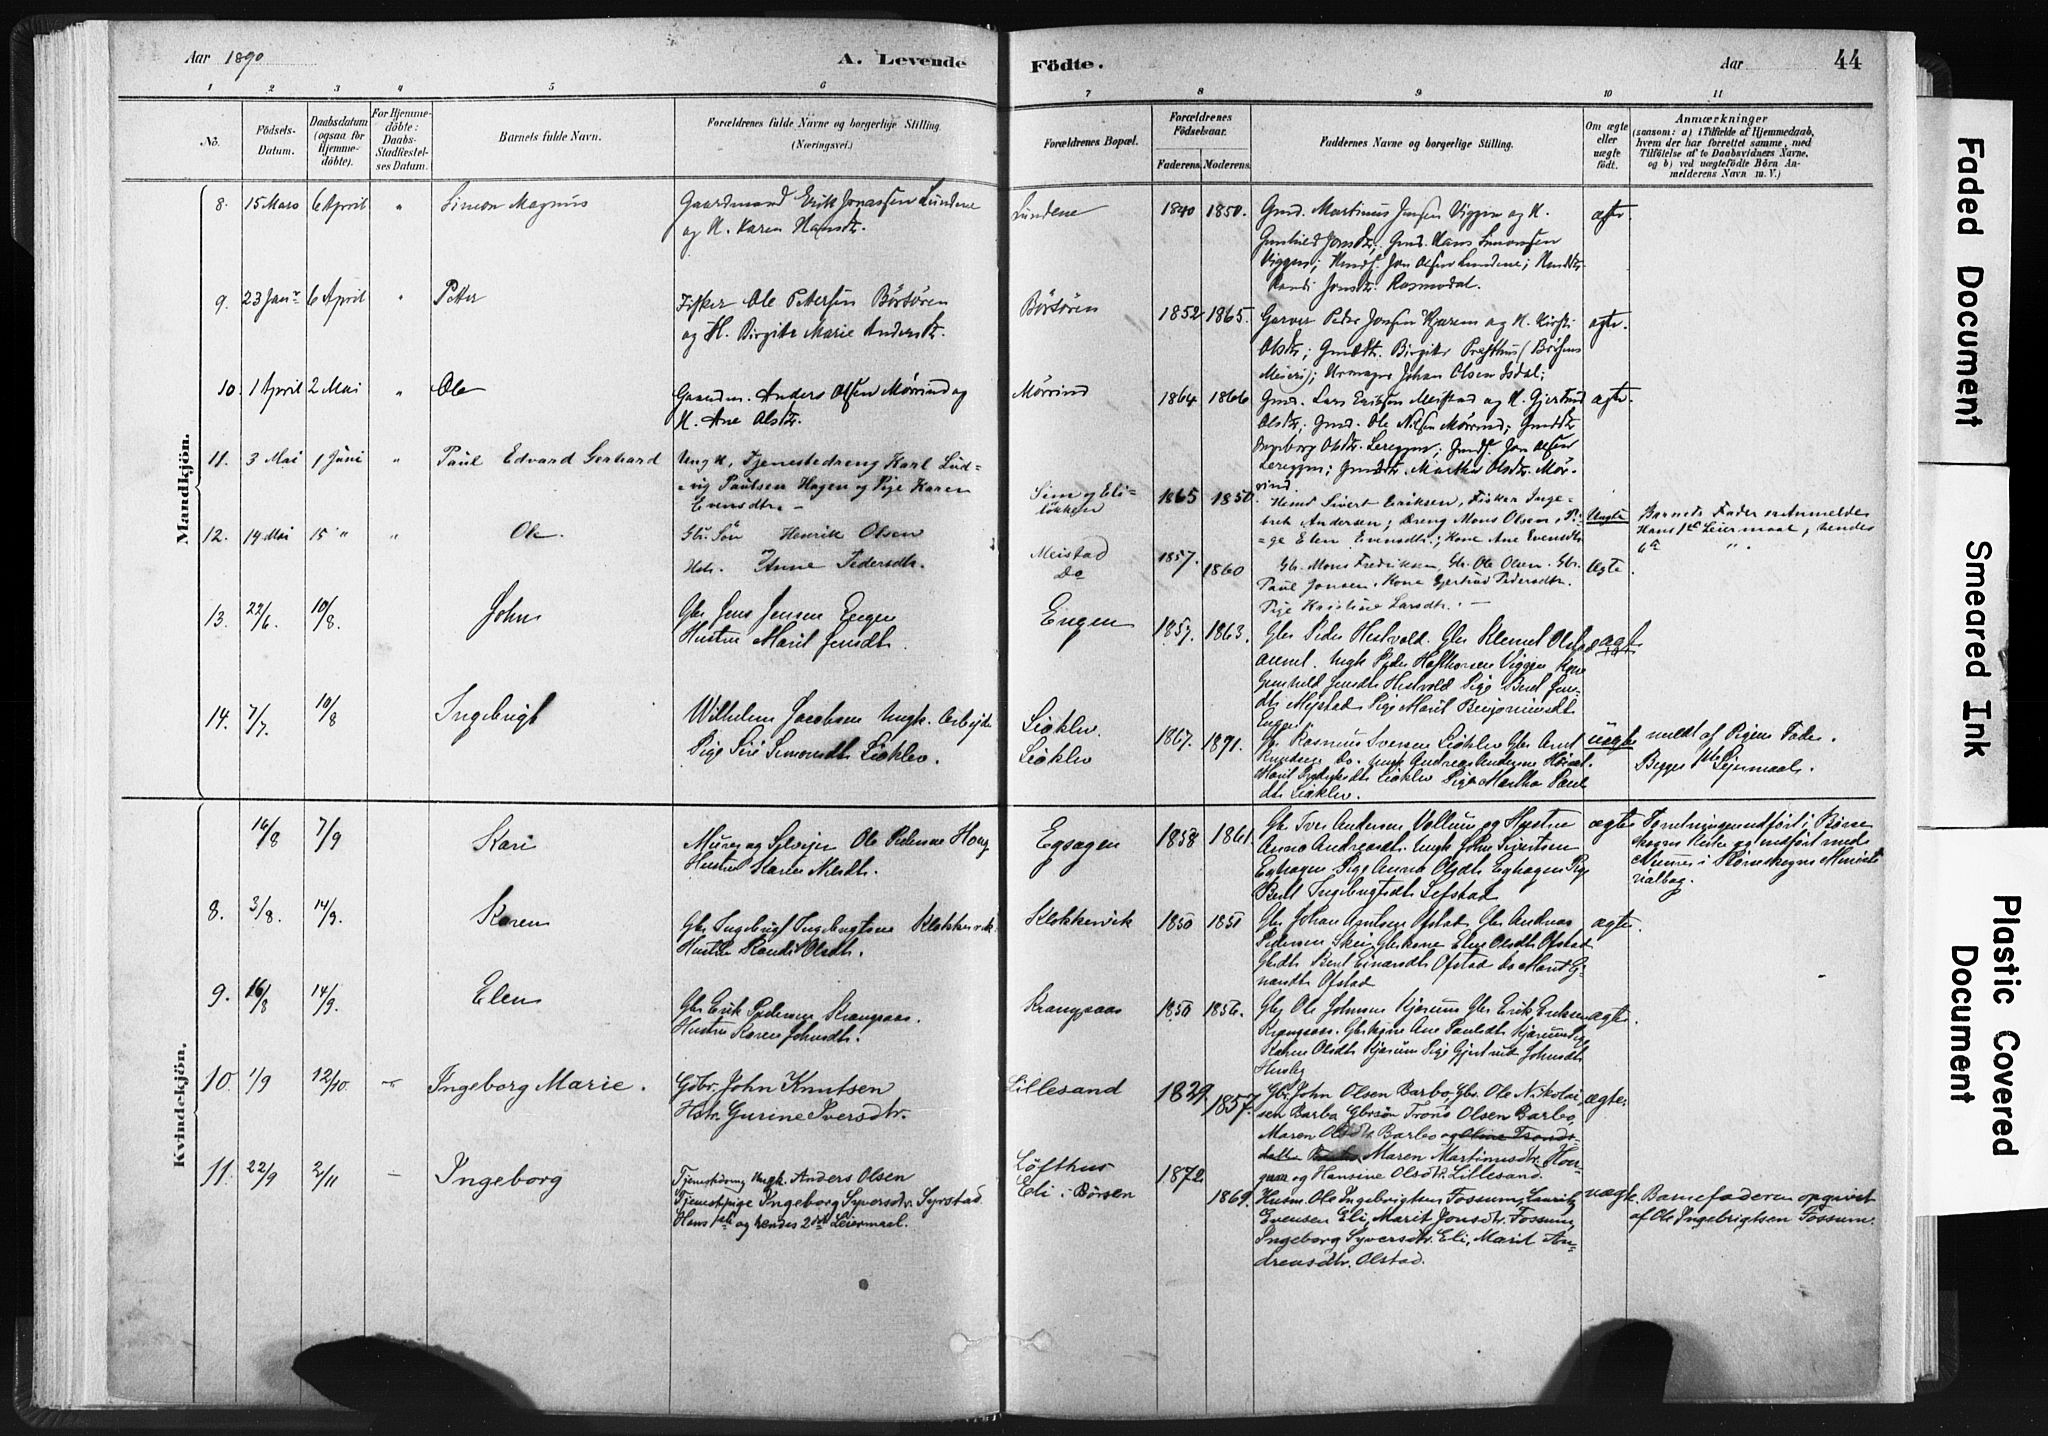 Aar 1890
A. Levende
Födte.
Aar
44
1 2 3 4 5 6 7 8 9 10 11
No.
Födsels-Datum.
Daabsdatum (ogsaa for Hjemme-döbte).
For Hjemme-döbte: Daabs-Stadfæstel-ses Datum.
Barnets fulde Navn.
Forældrenes fulde Navne og borgerlige Stilling.
(Næringsvei.)
Forældrenes Bopæl.
Forældrenes Födselsaar.
Faderens. Moderens.
Faddernes Navne og borgerlige Stilling.
Om ægte eller uægte födt.
Anmærkninger
(saasom: a) i Tilfælde af Hjemmedaab,
hvem der har forrettet samme, med
Tilföielse af to Daabsvidners Navne,
og b) ved uægtefödte Börn An-
melderens Navn m. V.)
Mandkjön.
8. 15 Mars 6 April " Simon Magnus
Gaardmand Erik Jonassen Lundene
og K. Karen Hansdtr.
Lundene 1840 1850.
Gmd. Martinus Jensen Viggen og K.
Gunhild Jonsdtr.; Gmd. Hans Simonsen
Viggen; Jon Olsen Lundene;
Randi Jonsdtr.
ægte.
9. 23 Janr 6 April " Petter
Fisker Ole Petersen Börsören
og H. Birgite Marie Andersdtr.
Börsören 1852 1865.
Garver Peder Jonsen Hjærem og K. Kirsti
Olsdtr;
Urmager Johan Olsen Isdal;
ægte.
10. 1 April 2 Mai " Ole
Gaardm. Anders Olsen Mörrind og
K. Ane Olsdtr.
Mörrind 1864 1866
Gmd. Lars Eriksen Meistad og K. Gjertrud
Olsdtr; Gmd. Ole Nilsen Mörrind;
Ingeborg Olsdtr. Leregen; Jon Olsen
Leregen; Marthe Olsdtr. Mör-
rind.
ægte.
11. 3 Mai 1 Juni " Paul Edvard Gerhard
Ungk, Tjenestedreng Karl Lud-
vig Paulsen Hagen og Pige Karen
Evensdtr. -
1865 1850
Sivert Eriksen, Fisker Inge-
bret Andersen; Dreng Mons Olsen, Pi-
ge Elen Evensdtr.; Kone Ane Evensdtr
Uægte
Barnets Fader
Hans 1ste Leiermaal, hendes
6te
12. 14 Mai 15 " " Ole
Gbr. Sön Henrik Olsen
Hstr. Anne Pedersdtr.
Meistad
Do
1857. 1860
Gbr. Mons Fredriksen, Gbr. Ole Olsen. Gbr.
Paul Jonsen. Kone Gjertrud Pedersdtr.
Pige Kristine Larsdtr. -
Ægte.
13. 22/6. 10/8. John
Gbr Jens Jensen Engen
Hustru Marit Jensdtr.
Engen 1857. 1863.
Gbr Peder Hestvold. Gbr Klemet Olstad
Ungk Peder Viggen Kone
Gunhild Jensdtr Hestvold Pige Berit Jens-
dtr Mejstad Pige Marit Benjaminsdtr
Engen.
ægte
14. 7/7. 10/8 Ingebrigt
Wilhelm Jacobsen Ungk. Arbejder
Pige Siri Simonsdtr Liöklev.
Liöklev.
Liöklev
1867. 1891.
Gbr Rasmus Iversen Liöklev Gbr Arnt
Knudsen do. Ungk Andreas Andersen
Marit Liöklev Pige Martha Pauls-
dtr Liöklev.
Uægte
meldt af Pigens Fader.
Begges 1ste Lejermaal.
Kvindekjön.
16/8 7/9 Kari
Murer og Selvejer Ole Pedersen Haug
Hustru Karen Nilsdtr.
Eghagen 1858 1861.
Gbr Iver Andersen Vollum og Hustru
Anna Andreasdtr. Ungk John Sivertsen
Eghagen Pige Anna Olsdtr Eghagen Pige
Berit Ingebrigtsdtr Lefstad
ægte
8. 3/8. 14/9. Karen
Gbr Ingebrigt Ingebrigtsen Klokkervik.
Hustru Randi Olsdtr.
Klokkervik 1850 1851
Gbr Johan Arntsen Ofstad Gbr Andreas
Pedersen Skei Gbrkone Elen Olsdtr Ofstad
Gbrdtr Berit Einarsdtr Ofstad do Marit E-
narsdtr Ofstad
ægte.
9. 16/8 14/9. Elen
Gbr Erik Pedersen Krangsaas
Hustru Karen Johnsdtr.
Krangsaas 1850 1856.
Gbr Ole Johnsen Kjörum Gbr Erik Eriksen
Krangsaas. Gbrkone Ane Paulsdtr Kjörum Pige
Karen Olsdtr Kjörum Pige Gjertrud Johnsdtr
Husby
ægte.
10. 1/9 12/10. " Ingeborg Marie.
Gdbr. John Knutsen
Hstr. Gurine Iversdtr.
Lillesand 1829. 1857.
Gbr. John Olsen Barbo, Gbr. Ole Nikolai-
sen Barbo, Gbrsön Trons Olsen Barbo,
Maren Olsdtr. Barbo og Oline Tronds-
datter Maren Martinusdtr. Hou-
gaas og Hansine Olsdtr. Lillesand.
ægte.
11. 22/9 2/11 - Ingeborg
Tjenestedreng Ungk. Anders Olsen
Tjenestepige Ingeborg Syversdtr. Syrstad.
Hans 1ste og hendes 2det Leiermaal.
Löfthus
Eli i Börsen
1872 1869.
Husm. Ole Ingebrigtsen Fossum, Lauritz
Evensen Eli, Marit Jonsdtr. Fossum,
Ingeborg Syversdtr. Eli, Marit An-
dreasdtr. Olstad.
uægte.
Barnefaderen opgivet
af Ole Ingebrigtsen Fossum.
Faded Document
Smeared Ink
Plastic Covered
Document